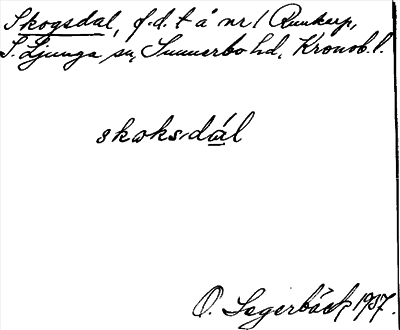 Skogsdal, f.d. t å nr 1 Runkarp,
S. Ljunga sn, Sunnerbo hd, Kronob. l.
skoksdál
O. Segerbäck 1937.